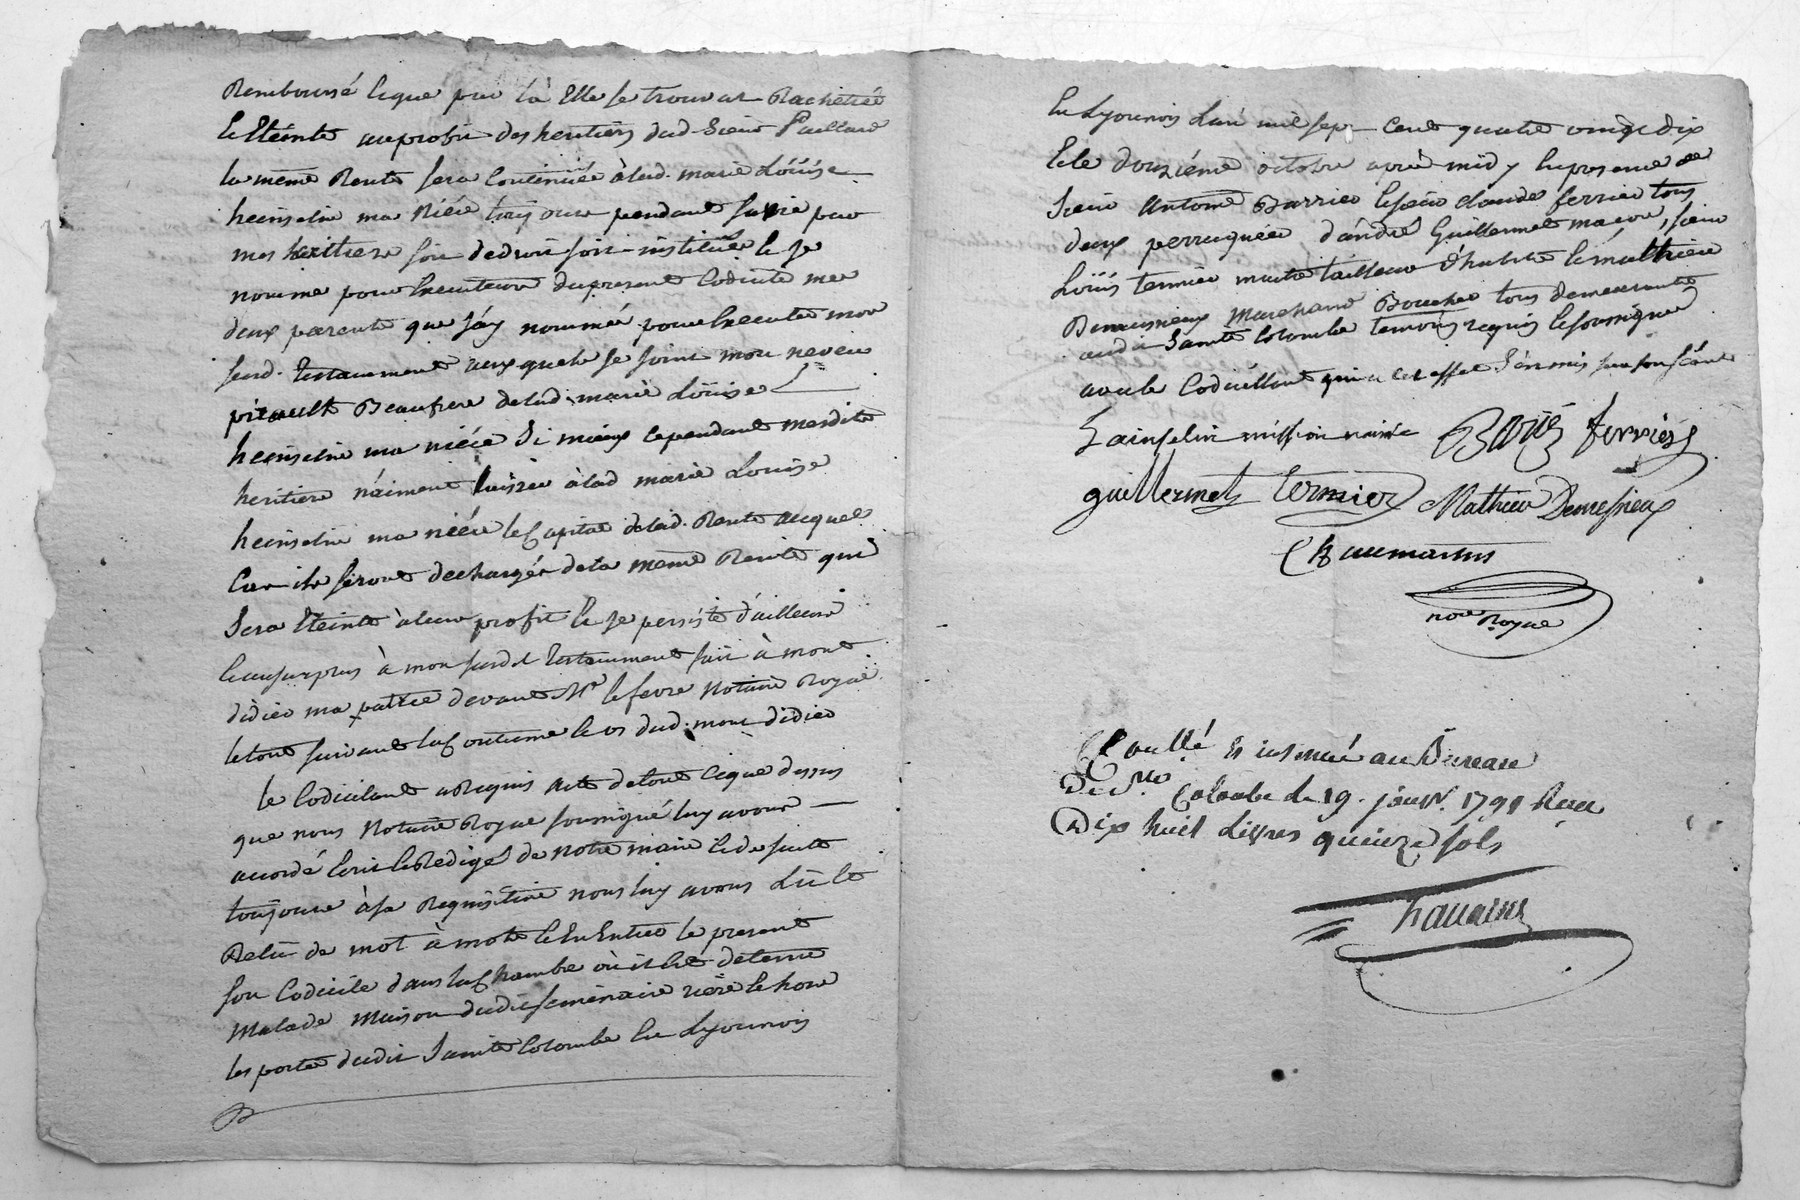 Remboursé et que par là Elle se trouvat Rachetéé
et Eteinte au profit des heritiers dud. Sieur Paillard
la même Rente sera Continuéé à lad. marie Loüise
heinselin ma Niéce toujours pendant sa vie par
mes heritiers soit de droit soit institués et je
nomme pour Executeurs du present Codicile mes
deux parents que j'ay nommés pour Executer mon
susd. testament auxquels je joint mon neveu
pirault Beaufrere de lad. marie Loüise
heinselin ma niéce si mieux cependant mesdits
heritiers n'aiment laisser à lad marie Loüise
heinselin ma niéce le Capital de lad. Rente auquel
Cas ils seront dechargés de la même Rente qui
Sera Eteinte à leur profit et je persiste d'ailleurs
et au surplus à mon susdit testament fait à mont
didier ma patrie devant Mr lefevre Notaire Royal
le tout suivant la Coutume et us dud. mont didier
le Codicilant a Requis acte de tout ce que dessus
que nous Notaire Royal soussigné luy avons
accordé Ecrit et Redigé de notre main et de suite
toujours à sa Requisition nous luy avons Lû et
Relû de mot à mot et en Entier le present
son Codicile dans la Chambre où il Est detenu
Malade maison dudit seminaire riére et hors
les portes dudit Sainte Colombe En Lyonnois
En Lyonnois L'an mil sept Cent quatre vingt dix
Et le douziéme octobre aprés midy En presence de
Sieur Antoine Barrier et sieur claude ferrier tous
deux perruquiers d'andré Guillermet macon, sieur
Loüis termier maitre tailleur d'habits et mathieu
Demesnieux Marchand Boucher tous demeurants
audit Sainte Colombe temoins requis et soussignés
avec le Codicillant qui a cet effet s'en mis sur son séant
hainselin mission naire Barié ferriés
guillermet termier Mathieu Demesnieux
Chaumartin
nore Royal
Conllé et insinué au Bureau
De Ste Colombe le 19. janv. 1791 Reçu
Dix huit Livres quinze sols